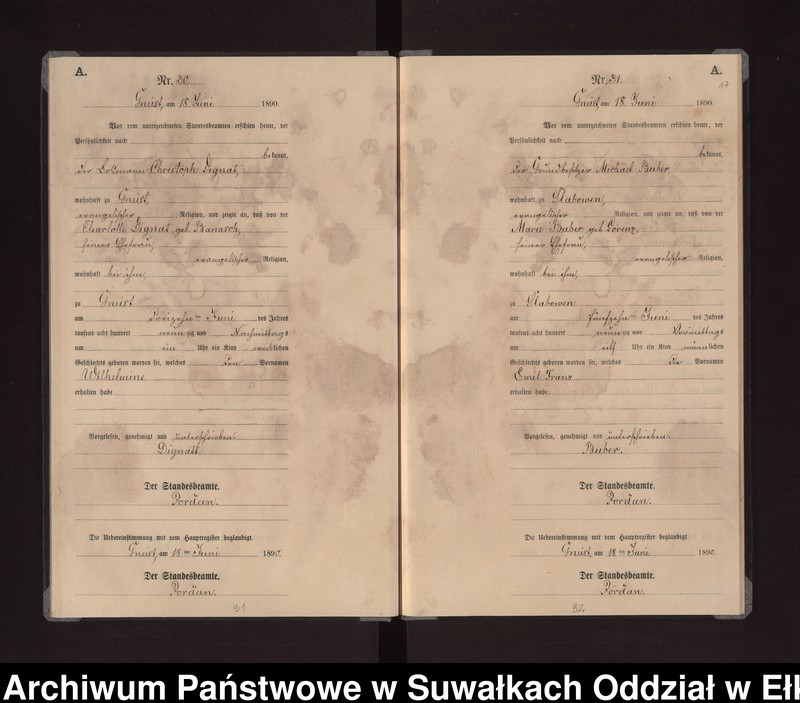 A.
Nr. 30.
Gneist, am 18 Juni 1890.
Vor dem unterzeichneten Standesbeamten erschien heute, der
Persönlichkeit nach
bekannt,
der Losmann Christoph Dignat,
wohnhaft zu Gneist,
evangelischer Religion, und zeigte an, daß von der
Charlotte Dignat geb. Banasch,
seiner Ehefrau,
evangelischer Religion,
wohnhaft bei ihm,
zu Gneist
am dreizehnten Juni des Jahres
tausend acht hundert neunzig und Nachmittags
um ein Uhr ein Kind weiblichen
Geschlechts geboren worden sei, welches den Vornamen
Wilhelmine
erhalten habe.
Vorgelesen, genehmigt und unterschrieben.
Dignatt.
Der Standesbeamte.
Pordan.
Die Uebereinstimmung mit dem Hauptregister beglaubigt.
Gneist, am 18ten Juni 1890.
Der Standesbeamte.
Pordan.
31
A.
17
Nr. 31.
Gneist, am 18. Juni 1890.
Vor dem unterzeichneten Standesbeamten erschien heute, der
Persönlichkeit nach
bekannt,
der Grundbesitzer Michael Buber,
wohnhaft zu Slabowen,
evangelischer Religion, und zeigte an, daß von der
Marie Buber geb. Lorenz,
seiner Ehefrau,
evangelischer Religion,
wohnhaft bei ihm,
zu Slabowen
am fünfzehnten Juni des Jahres
tausend acht hundert neunzig und Vormittags
um elf Uhr ein Kind männlichen
Geschlechts geboren worden sei, welches die Vornamen
Emil Franz
erhalten habe.
Vorgelesen, genehmigt und unterschrieben.
Buber.
Der Standesbeamte.
Pordan.
Die Uebereinstimmung mit dem Hauptregister beglaubigt.
Gneist, am 18ten Juni 1890.
Der Standesbeamte.
Pordan.
32
Archiwum Państwowe w Suwałkach Oddział w Ełk